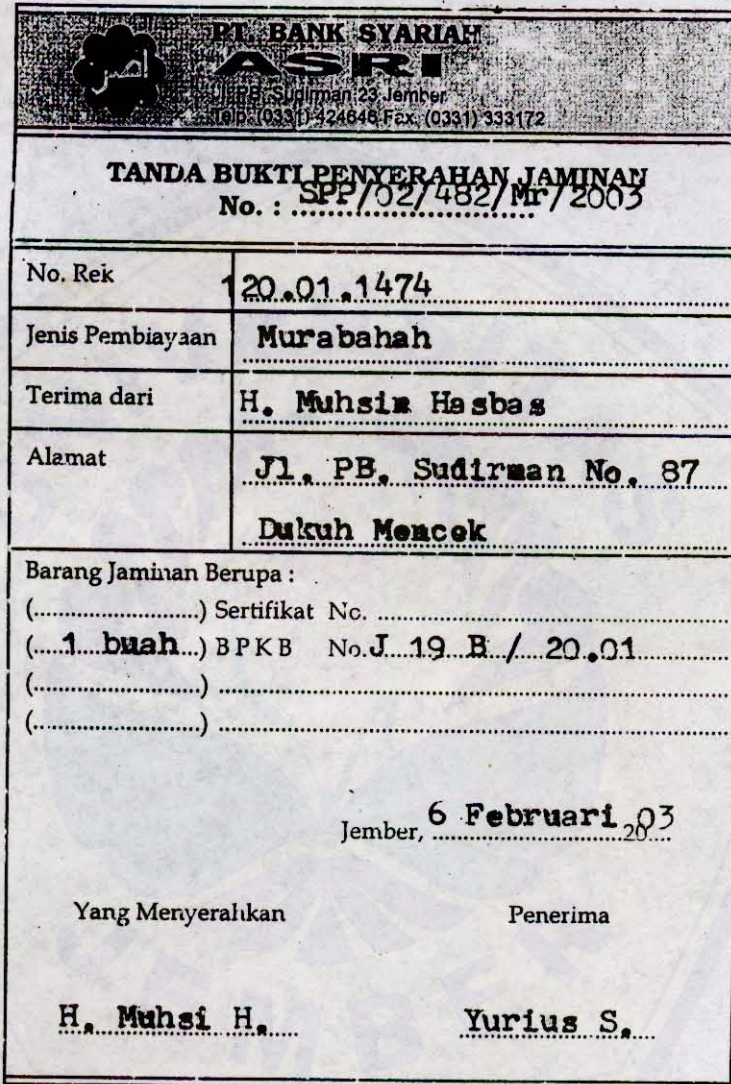 PT. BANK SYARIAH
ASRI
Jl. PB. Sudirman 23 Jember
Telp. (0331) 424646 Fax. (0331) 333172
TANDA BUKTI PENYERAHAN JAMINAN
No. : SPP/02/482/Mr/2003
No. Rek 120.01.1474
Jenis Pembiayaan Murabahah
Terima dari H. Muhsin Hasbas
Alamat Jl. PB. Sudirman No. 87
Dukuh Mencek
Barang Jaminan Berupa :
(........................) Sertifikat No. ........................
(.....1 buah...) BPKB No. J 19 B / 20.01
(........................) ........................
(........................) ........................
Jember, 6 Februari 2003
Yang Menyerahkan Penerima
H. Muhsi H. Yurius S.
JEMBER